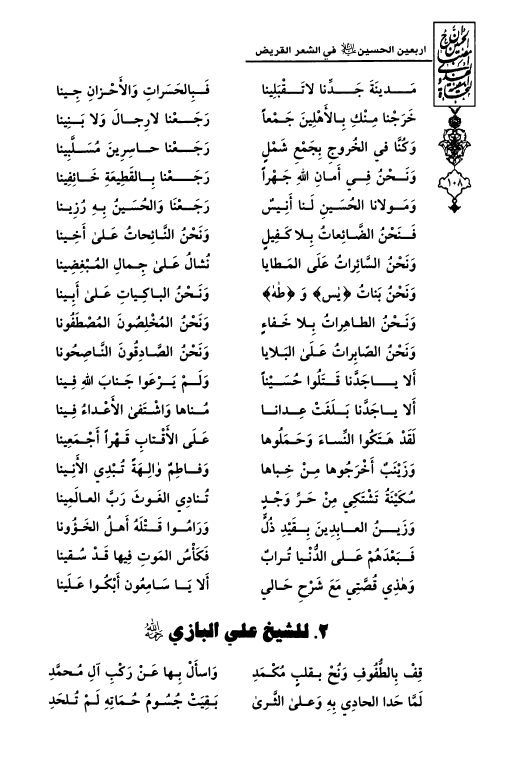 اربعين الحسين عليه السلام في الشعر القريض
١٠٨
مَـدينَةَ جَـدِّنا لاتَـقْبَلِينا فَـبِالحَسَراتِ وَالأَحْزانِ جِـينا
خَرَجْنا مِـنْكِ بِـالأَهْلِينَ جَمْعاً رَجَـعْنا لارِجـالَ وَلا بَـنِينا
وَكُنَّا في الخُروجِ بِجَمْعِ شَمْلٍ رَجَـعْنا حـاسِرِينَ مُسَلَّبِينا
وَنَحْنُ فِـي أَمـانِ اللهِ جَـهْراً رَجَـعْنا بِـالقَطِيعَةِ خَـائِفِينا
وَمَـولانا الحُسَينِ لَـنا أَنِيسٌ رَجَعْنَا وَالحُسَينُ بِهِ رُزِينا
فَـنَحْنُ الضَّائِعاتُ بِـلا كَـفِيلٍ وَنَحْنُ النَّائِحاتُ عَلىٰ أَخِينا
وَنَحْنُ السَّائِراتُ عَلَى المَطايا نُشالُ عَـلىٰ جِـمالِ المُبْغِضِينا
وَنَحْنُ بَناتُ ﴿يٰس﴾ وَ ﴿طٰهٰ﴾ وَنَحْنُ البـاكِياتِ عَلىٰ أَبِـينا
وَنَـحْنُ الطاهِراتُ بِـلا خَـفاءٍ وَنَحْنُ المُخْلِصُونَ المُصْطَفُونا
وَنَحْنُ الصّابِراتُ عَـلىٰ البَلايا وَنَحْنُ الصّادِقُونَ النّاصِحُونا
أَلا يـاجَـدَّنا قَـتَلُوا حُسَـيْناً وَلَـمْ يَـرْعَوا جَنابَ اللهِ فِينا
أَلا يـاجَدَّنا بَـلَغَتْ عِـدانـا مُـناها وَاشْتَفىٰ الأَعْداءُ فِينا
لَقَدْ هَـتَكُوا النِّساءَ وَحَمَلُوها عَلَى الأَقْتابِ قَـهْراً أَجْـمَعِينا
وَزَيْنَبٌ أَخْرَجُوها مِـنْ خِباها وَفـاطِمٌ والِهَةٌ تُبْدِي الأَنِينا
سُكَيْنَةُ تَشْتَكِي مِنْ حَرِّ وَجْدٍ تُنادِي الغَوثَ رَبَّ العالَمِينا
وَزَيـنُ العـابِدِينَ بِـقَيْدِ ذُلٍّ وَرَامُـوا قَـتْلَهُ أَهلُ الخَؤُونا
فَـبَعْدَهُمْ عَـلى الدُّنْيا تُـرابٌ فَكَأْسُ المَوتِ فِيها قَدْ سُقِينا
وَهٰذِي قُصَّتِي مَعْ شَرْحِ حَالي أَلا يَـا سَامِعُون أَبْكُوا عَلَينا
٢. للشيخ علي البازي رحمه الله
قِفْ بِالطُّفُوفِ وَنُحْ بـقلبٍ مُكْمَـدِ وَاسأَلْ بِـها عَنْ رَكْبِ آلِ مُـحمَّدِ
لَمَّا حَدا الحادِي بِهِ وَعـلىٰ الثَّرىٰ بَـقِيَتْ جُسُومُ حُمَاتِهِ لَـمْ تُلحَدِ